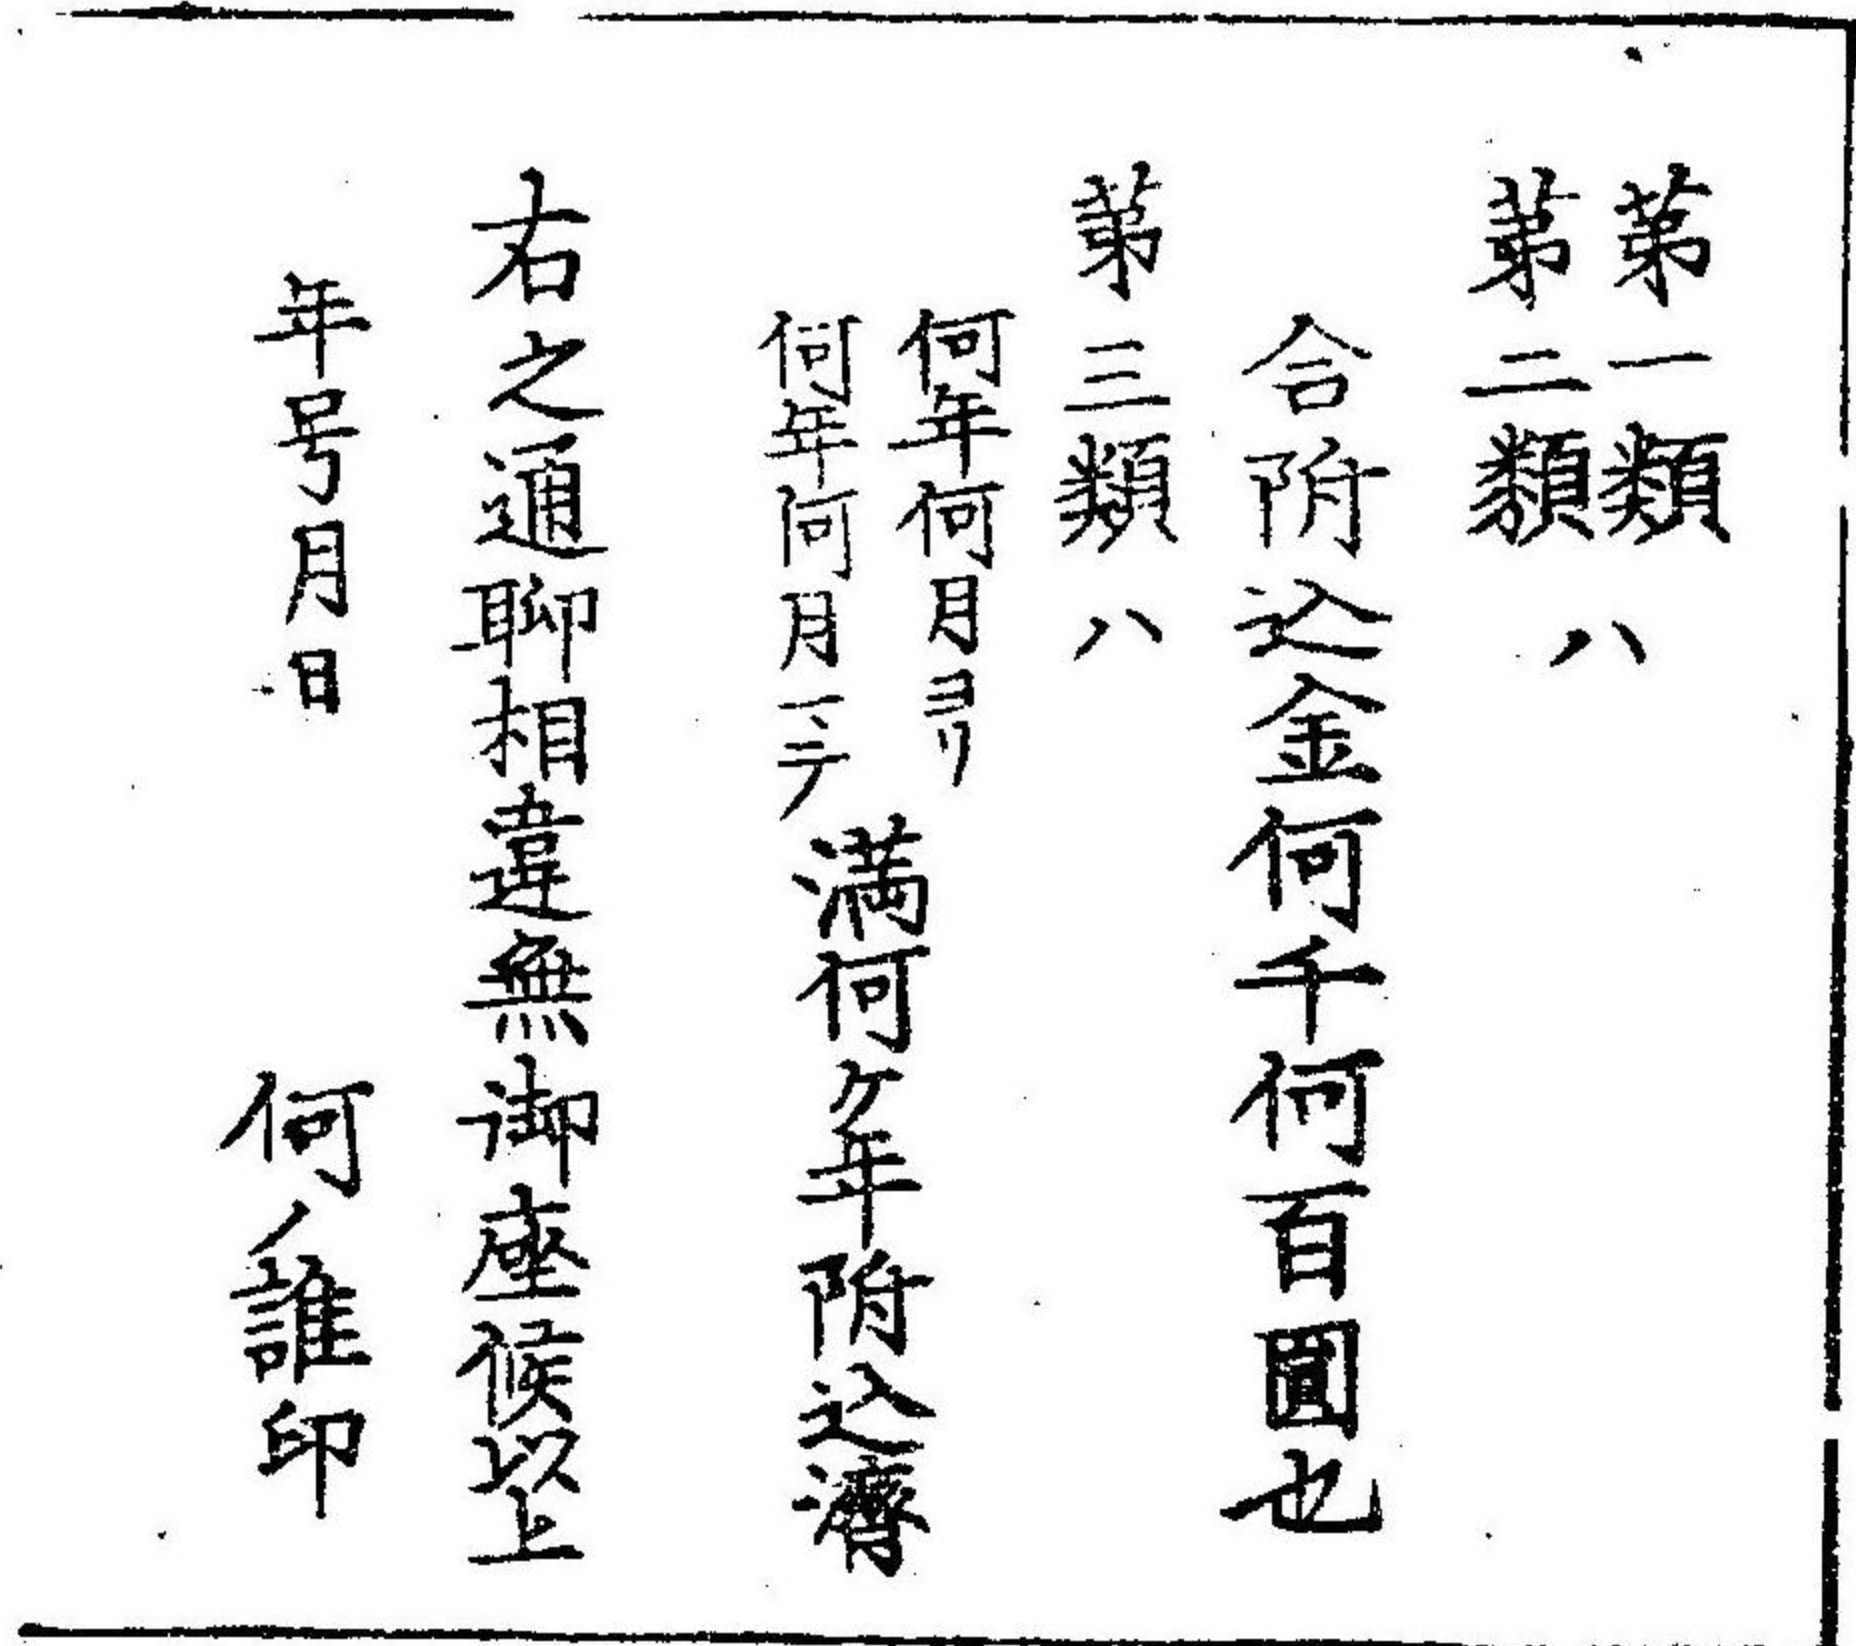 第一類
第二類ハ
合附込金何千何百圓也
第三類ハ
何年何月ヨリ
何年何月マデ
満何ケ年附込濟
右之通聊相違無御座候以上
年号月日
何ノ誰印